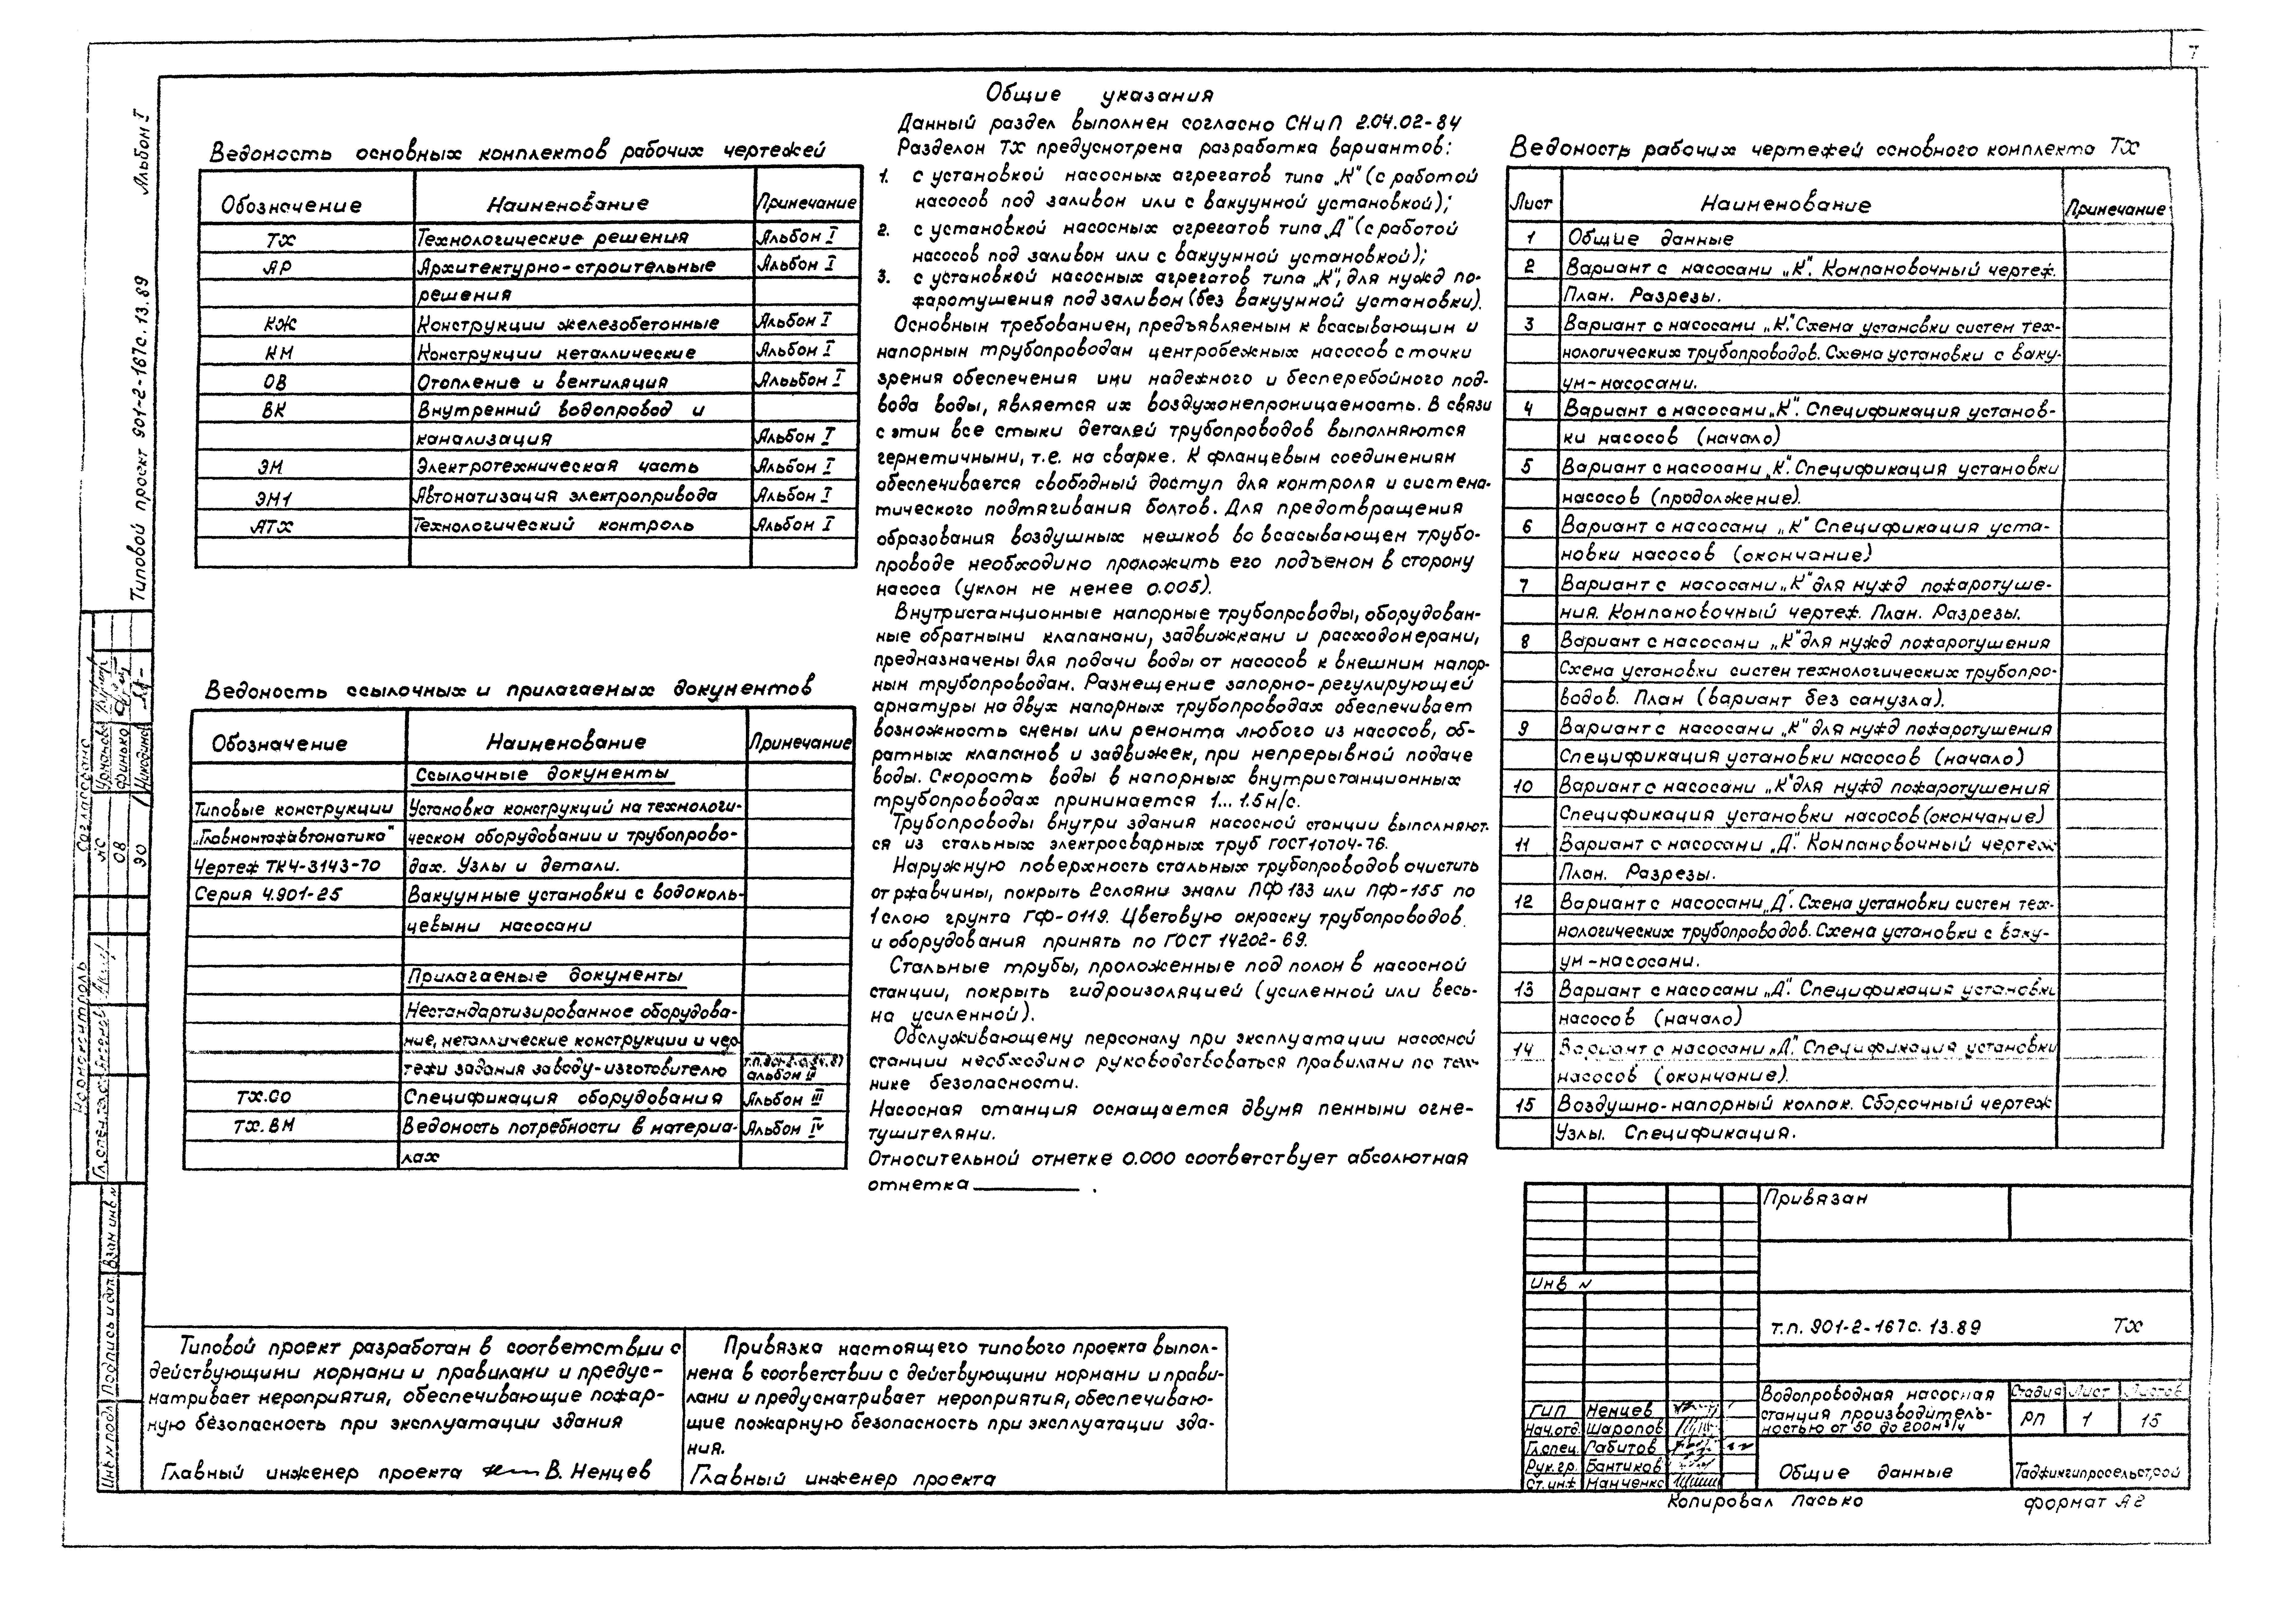 7
Альбом I
Типовой проект 901-2-167с.13.89
Ведомость основных комплектов рабочих чертежей
Обозначение Наименование Примечание
ТХ Технологические решения Альбом I
АР Архитектурно-строительные Альбом I
решения
КЖ Конструкции железобетонные Альбом I
КМ Конструкции металлические Альбом I
ОВ Отопление и вентиляция Альбом I
ВК Внутренний водопровод и
канализация Альбом I
ЭМ Электротехническая часть Альбом I
ЭМ1 Автоматизация электропривода Альбом I
АТХ Технологический контроль Альбом I
Ведомость ссылочных и прилагаемых документов
Обозначение Наименование Примечание
Ссылочные документы
Типовые конструкции Установка конструкций на технологи-
„Главмонтажавтоматика" ческом оборудовании и трубопрово-
Чертеж ТК4-3143-70 дах. Узлы и детали.
Серия 4.901-25 Вакуумные установки с водоколь-
цевыми насосами
Прилагаемые документы
Нестандартизированное оборудова-
ние, металлические конструкции и чер
тежи задания заводу-изготовителю альбом II
ТХ.СО Спецификация оборудования Альбом III
ТХ.ВМ Ведомость потребности в материа- Альбом IV
лах
Общие указания
Данный раздел выполнен согласно СНиП 2.04.02-84
Разделом ТХ предусмотрена разработка вариантов:
1. с установкой насосных агрегатов типа „К" (с работой
насосов под заливом или с вакуумной установкой);
2. с установкой насосных агрегатов типа „Д" (с работой
насосов под заливом или с вакуумной установкой);
3. с установкой насосных агрегатов типа „К", для нужд по-
жаротушения под заливом (без вакуумной установки).
Основным требованием, предъявляемым к всасывающим и
напорным трубопроводам центробежных насосов с точки
зрения обеспечения ими надежного и бесперебойного под-
вода воды, является их воздухонепроницаемость. В связи
с этим все стыки деталей трубопроводов выполняются
герметичными, т.е. на сварке. К фланцевым соединениям
обеспечивается свободный доступ для контроля и система-
тического подтягивания болтов. Для предотвращения
образования воздушных мешков во всасывающем трубо-
проводе необходимо проложить его подъемом в сторону
насоса (уклон не менее 0.005).
Внутристанционные напорные трубопроводы, оборудован-
ные обратными клапанами, задвижками и расходомерами,
предназначены для подачи воды от насосов к внешним напор-
ным трубопроводам. Размещение запорно-регулирующей
арматуры на двух напорных трубопроводах обеспечивает
возможность смены или ремонта любого из насосов, об-
ратных клапанов и задвижек, при непрерывной подаче
воды. Скорость воды в напорных внутристанционных
трубопроводах принимается 1... 1.5 м/с.
Трубопроводы внутри здания насосной станции выполняют-
ся из стальных электросварных труб ГОСТ 10704-76.
Наружную поверхность стальных трубопроводов очистить
от ржавчины, покрыть 2 слоями эмали ПФ 133 или ПФ-155 по
1 слою грунта ГФ-0119. Цветовую окраску трубопроводов
и оборудования принять по ГОСТ 14202-69.
Стальные трубы, проложенные под полом в насосной
станции, покрыть гидроизоляцией (усиленной или весь-
ма усиленной).
Обслуживающему персоналу при эксплуатации насосной
станции необходимо руководствоваться правилами по тех-
нике безопасности.
Насосная станция оснащается двумя пенными огне-
тушителями.
Относительной отметке 0.000 соответствует абсолютная
отметка ________ .
Ведомость рабочих чертежей основного комплекта ТХ
Лист Наименование Примечание
1 Общие данные
2 Вариант с насосами „К". Компановочный чертеж.
План. Разрезы.
3 Вариант с насосами „К". Схема установки систем тех-
нологических трубопроводов. Схема установки с ваку-
ум-насосами.
4 Вариант с насосами „К". Спецификация установ-
ки насосов (начало)
5 Вариант с насосами „К". Спецификация установки
насосов (продолжение).
6 Вариант с насосами „К" Спецификация уста-
новки насосов (окончание)
7 Вариант с насосами „К" для нужд пожаротуше-
ния. Компановочный чертеж. План. Разрезы.
8 Вариант с насосами „К" для нужд пожаротушения
Схема установки систем технологических трубопро-
водов. План (вариант без санузла).
9 Вариант с насосами „К" для нужд пожаротушения
Спецификация установки насосов (начало)
10 Вариант с насосами „К" для нужд пожаротушения
Спецификация установки насосов (окончание)
11 Вариант с насосами „Д". Компановочный чертеж
План. Разрезы.
12 Вариант с насосами „Д". Схема установки систем тех-
нологических трубопроводов. Схема установки с ваку-
ум-насосами.
13 Вариант с насосами „Д". Спецификация установки
насосов (начало)
14 Вариант с насосами „Д". Спецификация установки
насосов (окончание).
15 Воздушно-напорный колпак. Сборочный чертеж
Узлы. Спецификация.
Согласовано
АС
ОВ Финько
ЭО Никодимов
Нормоконтроль
Взам инв N
Подпись и дат.
Инв N подл
Типовой проект разработан в соответствии с
действующими нормами и правилами и предус-
матривает мероприятия, обеспечивающие пожар-
ную безопасность при эксплуатации здания
Главный инженер проекта В. Немцев
Привязка настоящего типового проекта выпол-
нена в соответствии с действующими нормами и прави-
лами и предусматривает мероприятия, обеспечиваю-
щие пожарную безопасность при эксплуатации зда-
ния.
Главный инженер проекта
Привязан
Инв N
т.п. 901-2-167с. 13.89 ТХ
ГИП Немцев
Нач.отд. Шаропов
Гл.спец. Габитов
Рук.гр. Бантиков
Ст.инж Манченко
Водопроводная насосная
станция производитель-
ностью от 50 до 200м³/ч
Стадия Лист Листов
РП 1 15
Общие данные
Таджикгипросельстрой
Копировал Пасько формат А2